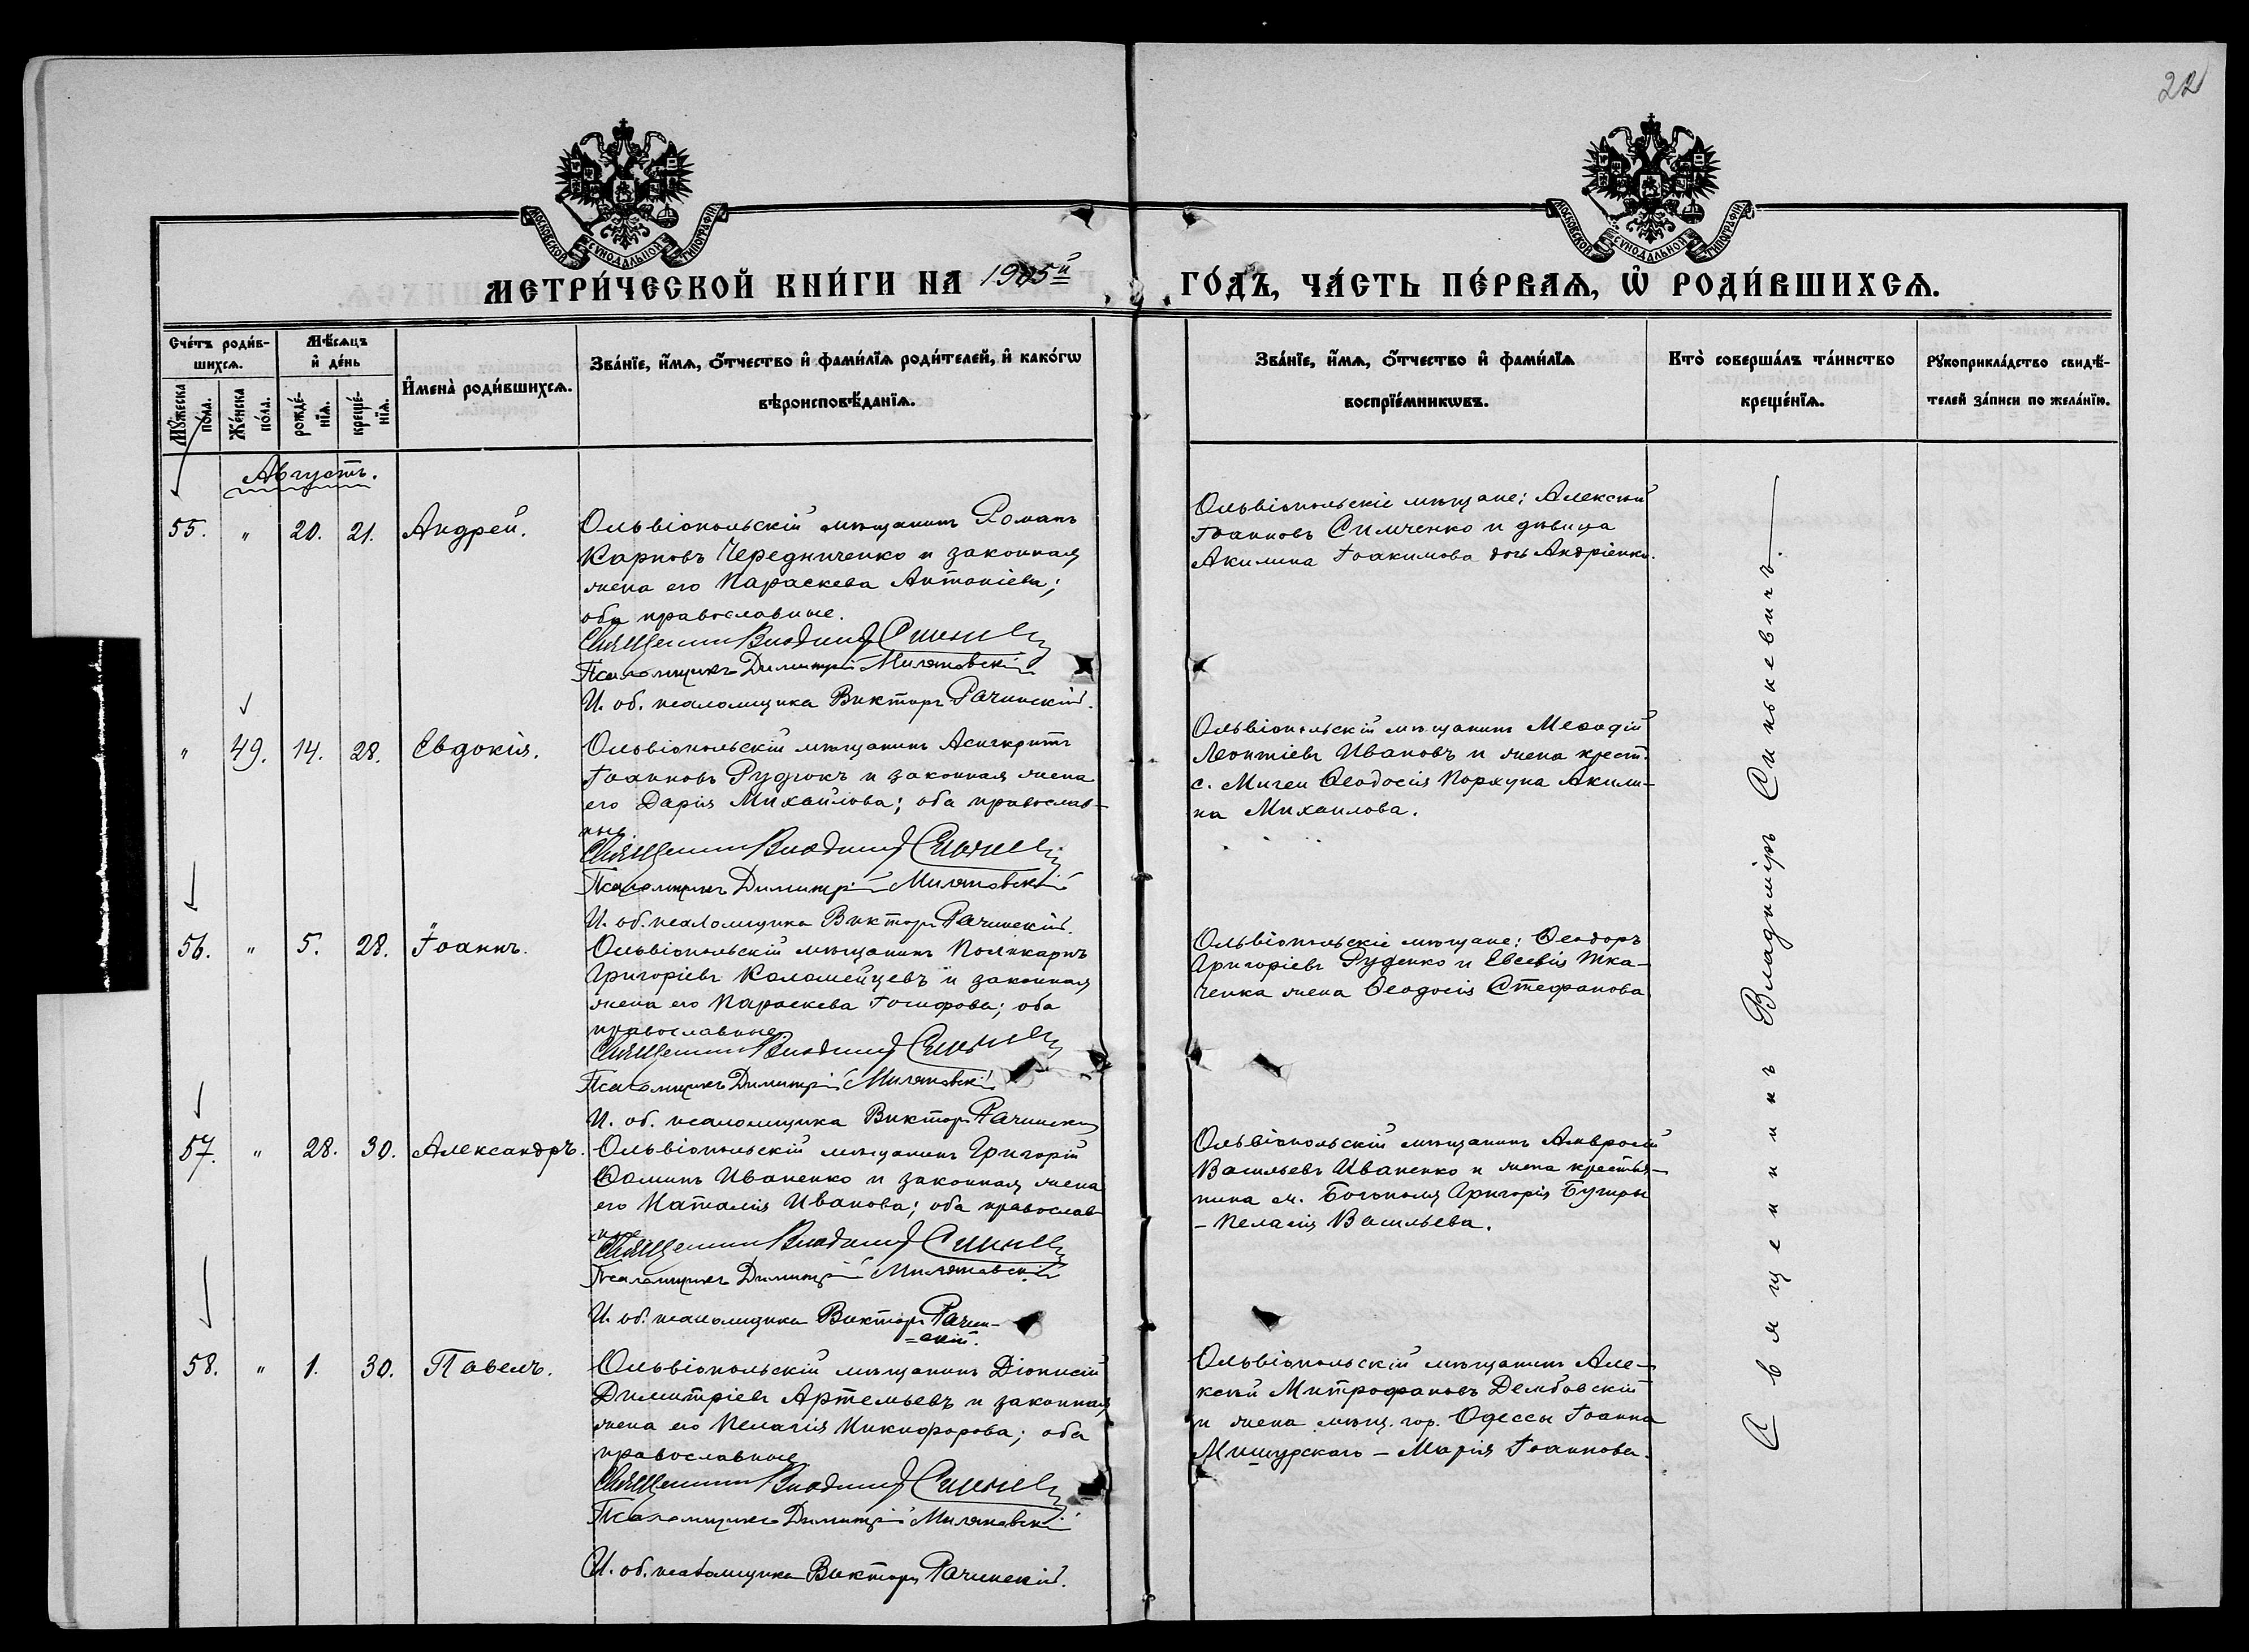 22
МОСКОВСКОЙ СѴНОДАЛЬНОЙ ТИПОГРАФІИ
МОСКОВСКОЙ СѴНОДАЛЬНОЙ ТИПОГРАФІИ
МЕТРИ́ЧЕСКОЙ КНИ́ГИ НА 1905й ГО́ДЪ, ЧА́СТЬ ПЕ́РВАѦ, Ѡ҆ РОДИ́ВШИХСѦ.
Сче́тъ роди́в-
шихсѧ.
Мꙋ́жеска по́ла.
Же́нска по́ла.
Мѣ́сѧцъ
и҆ де́нь
рожде́-
нїѧ.
креще́-
нїѧ.
И҆мена̀ роди́вшихсѧ.
Зва́нїе, и҆́мѧ, ѻ҆́тчество и҆ фами́лїѧ роди́телей, и҆ како́гѡ
вѣроисповѣ́данїѧ.
Зва́нїе, и҆́мѧ, ѻ҆́тчество и҆ фами́лїѧ
воспрїе́мникѡвъ.
Кто̀ соверша́лъ та́инство
креще́нїѧ.
Рꙋкоприкла́дство свидѣ́-
телей за́писи по жела́нїю.
Августъ.
55. " 20. 21. Андрей.
Ольвіопольскій мѣщанинъ Романъ
Карповъ Чередниченко и законная
жена его Параскева Антоніева;
оба православные.
Священникъ Владиміръ Синькевичъ
Псаломщикъ Димитрій
И. об. псаломщика Викторъ Рачинскій.
Ольвіопольскіе мѣщане: Алексій
Іоанновъ Симченко и дѣвица
Акилина Іоакимова дочь Андріенко.
" 49. 14. 28. Евдокія.
Ольвіопольскій мѣщанинъ Асигкритъ
Іоанновъ и законная жена
его Дарія Михайлова; оба православ-
ные.
Священникъ Владиміръ Синькевичъ
Псаломщикъ Димитрій
И. об. псаломщика Викторъ Рачинскій.
Ольвіопольскій мѣщанинъ Меѳодій
Леонтіевъ Ивановъ и жена крест.
с. Мигеи Ѳеодосія Порхуна Акили-
на Михаилова.
56. " 5. 28. Іоаннъ.
Ольвіопольскій мѣщанинъ Поликарпъ
Григоріевъ Коломейцевъ и законная
жена его Параскева Іосифова; оба
православные.
Священникъ Владиміръ Синькевичъ
Псаломщикъ Димитрій
И. об. псаломщика Викторъ Рачинскій
Ольвіопольскіе мѣщане: Ѳеодоръ
Григоріевъ Руденко и Евсевія Тка-
ченка жена Ѳеодосія Стефанова
57. " 28. 30. Александръ.
Ольвіопольскій мѣщанинъ Григорій
Ѳоминъ Иваненко и законная жена
его Наталія Иванова; оба православ-
ные
Священникъ Владиміръ Синькевичъ
Псаломщикъ Димитрій
И. об. псаломщика Викторъ Рачин-
=скій.
Ольвіопольскій мѣщанинъ Амвросій
Васильевъ Иваненко и жена крестья-
нина м. Богополя Григорія
- Пелагія Васильева.
58. " 1. 30. Павелъ.
Ольвіопольскій мѣщанинъ Діонисій
Димитріевъ Артемьевъ и законная
жена его Пелагія Никифорова; оба
православные
Священникъ Владиміръ Синькевичъ
Псаломщикъ Димитрій
И. об. псаломщика Викторъ Рачинскій.
Ольвіопольскій мѣщанинъ Але-
ксѣй Митрофановъ Дембовскій
и жена мѣщ. гор. Одессы Іоанна
Мишурскаго - Марія Іоаннова.
Священникъ Владиміръ Синькевичъ.